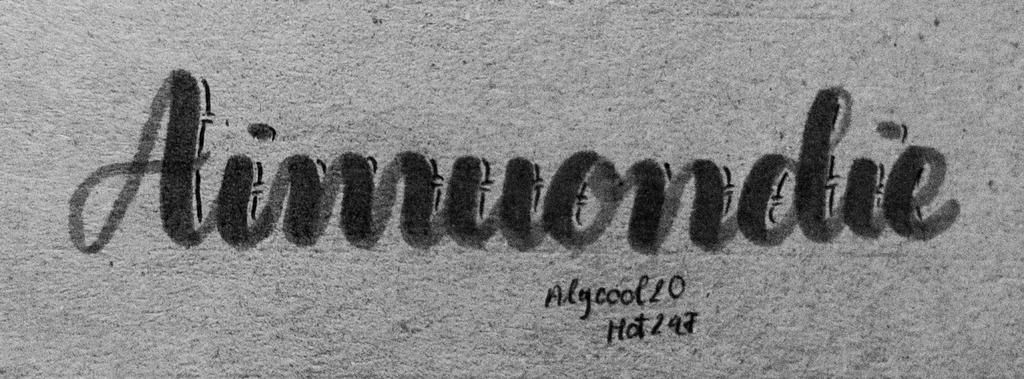 Aimuondie
Alycool20
Hot247